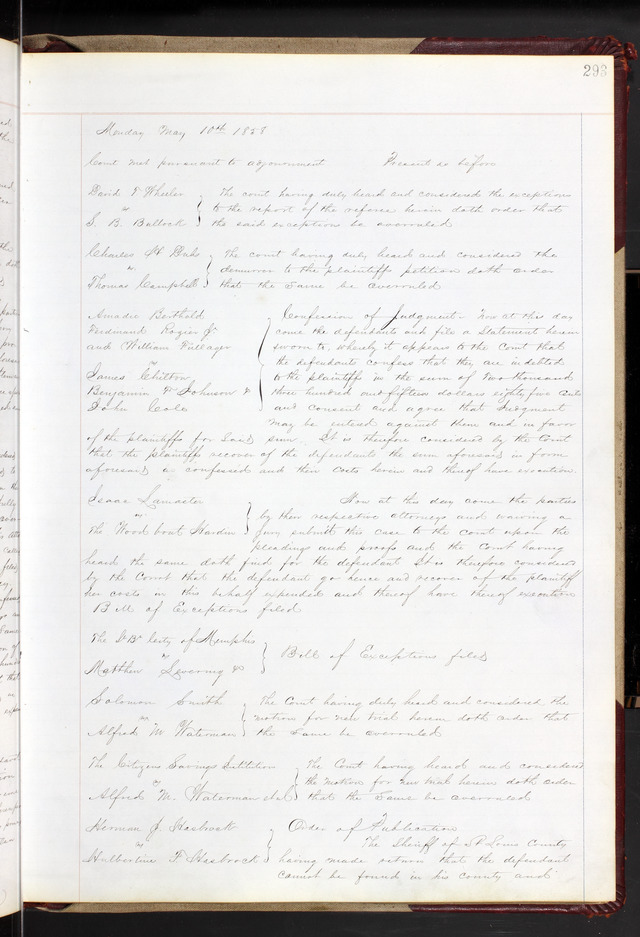 293
Monday May 10th 1858
Court met pursuant to adjournment Present as before
David T Wheeler
vs
S. B. Bullock
The court having duly heard and considered the exceptions
to the report of the referee herein doth order that
the said exceptions be overruled
Charles H
vs
Thomas Campbell
The court having duly heard and considered the
demurrer to the plaintiffs petition doth order
that the same be overruled
Amadie Berthold
Ferdinand Rozier Jr
and William
vs
James Chitton
Benjamin F Johnson &
John Cole
Confession of Judgment. Now at this day
come the defendants and file a Statement herein
sworn to, whereby it appears to the Court that
the defendants confess that they are indebted
to the plaintiffs in the sum of Two thousand
three hundred and fifteen dollars eighty five cents
and consent and agree that Judgment
may be entered against them and in favor
of the plaintiffs for said sum. It is therefore considered by the Court
that the plaintiffs recover of the defendants the sum aforesaid in form
aforesaid a confessed and their costs herein and thereof have execution.
Isaac
vs
The Wood boat Warden
Now at this day come the parties
by their respective attorneys and waiving a
Jury submit this case to the Court upon the
pleadings and proofs and the Court having
heard the same doth find for the defendant It is therefore considered
by the Court that the defendant go hence and recover of the plaintiff
her costs in this behalf expended and thereof have thereof execution
Bill of Exceptions filed
The St Bt City of Memphis
vs
Matthew Levering &
Bill of Exceptions filed
Solomon Smith
vs
Alfred M Waterman
The Court having duly heard and considered the
motion for new trial herein doth order that
the same be overruled
The Citizens Savings
vs
Alfred M. Waterman et al
The Court having heard and considered
the motion for new trial herein doth order
that the same be overruled
Herman J. Hasbrock
vs
F Hasbrock
Order of Publication
The Sheriff of St Louis County
having made return that the defendant
cannot be found in his county and